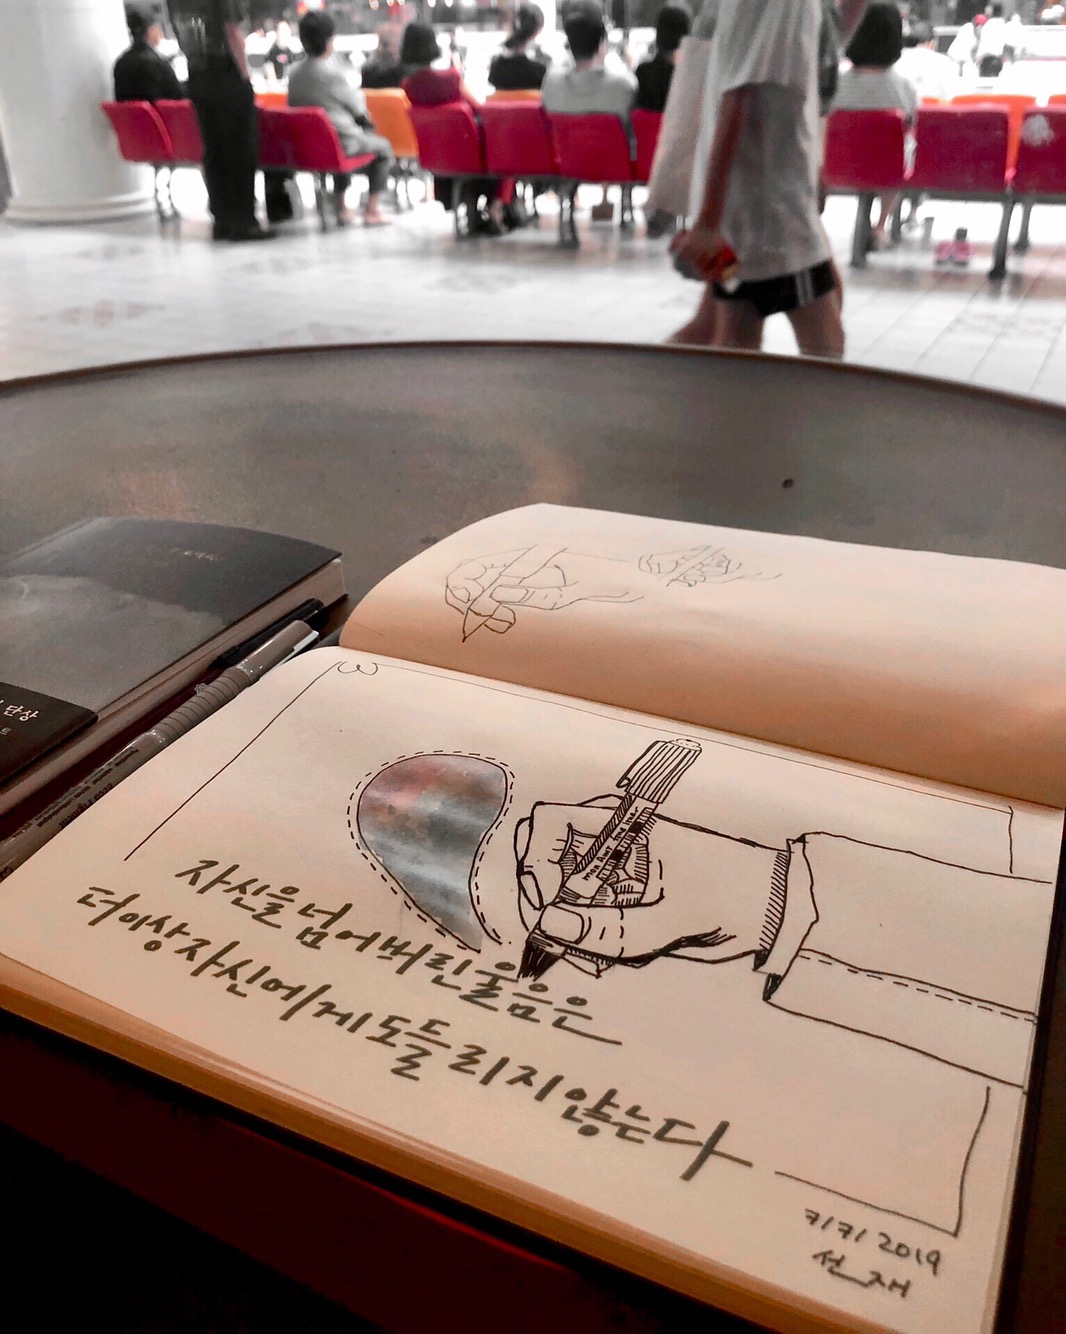 단상
자신을 넘어버린 울음은
더이상 자신에게 도들리지 않는다
7/7/ 2019
선재